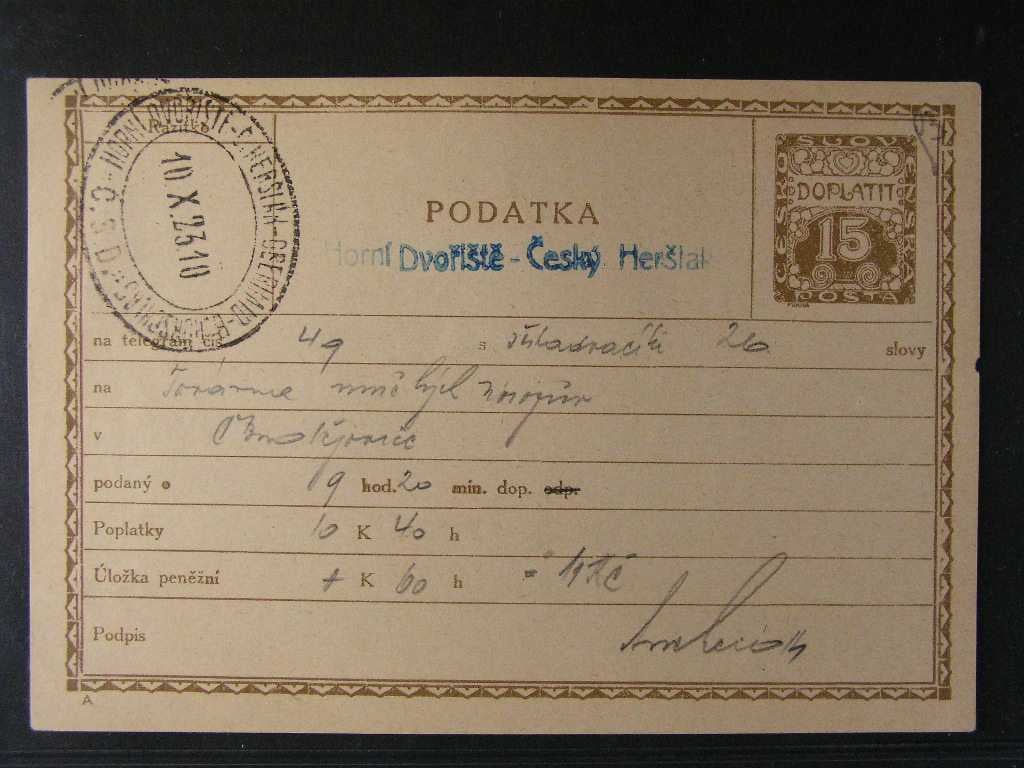 Razítko
HORNÍ DVOŘIŠTĚ-Č.HERŠLAK-OBERHAID-B.HÖRSCHLAG Č.S.D.
10 X 23.10
PODATKA
Horní Dvořiště - Český Heršlak
ČESKOSLOV
DOPLATIT
15
POŠTA
na telegram čís 49 s 26 slovy
na Továrna umělých
v
podaný o 9 hod. 20 min. dop. odp.
Poplatky 10 K 40 h
Úložka peněžní + K 60 h = 11 Kč
Podpis
A